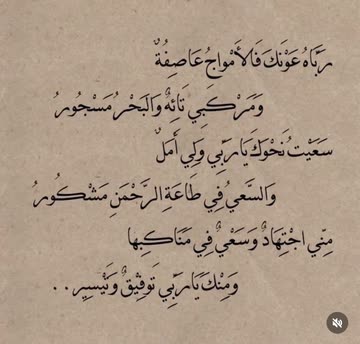 رَبَّاهُ عَوْنَكَ فَالأَمْوَاجُ عَاصِفَةٌ
وَمَرْكَبِي تَائِهٌ وَالبَحْرُ مَسْجُورُ
سَعَيْتُ نَحْوَكَ يَا رَبِّي وَلِي أَمَلٌ
وَالسَّعيُ فِي طَاعَةِ الرَّحْمَنِ مَشْكُورُ
مِنِّي اجْتِهَادٌ وَسَعْيٌ فِي مَنَاكِبِها
وَمِنْكَ يَا رَبِّي تَوفِيقٌ وَتَيْسِير . .